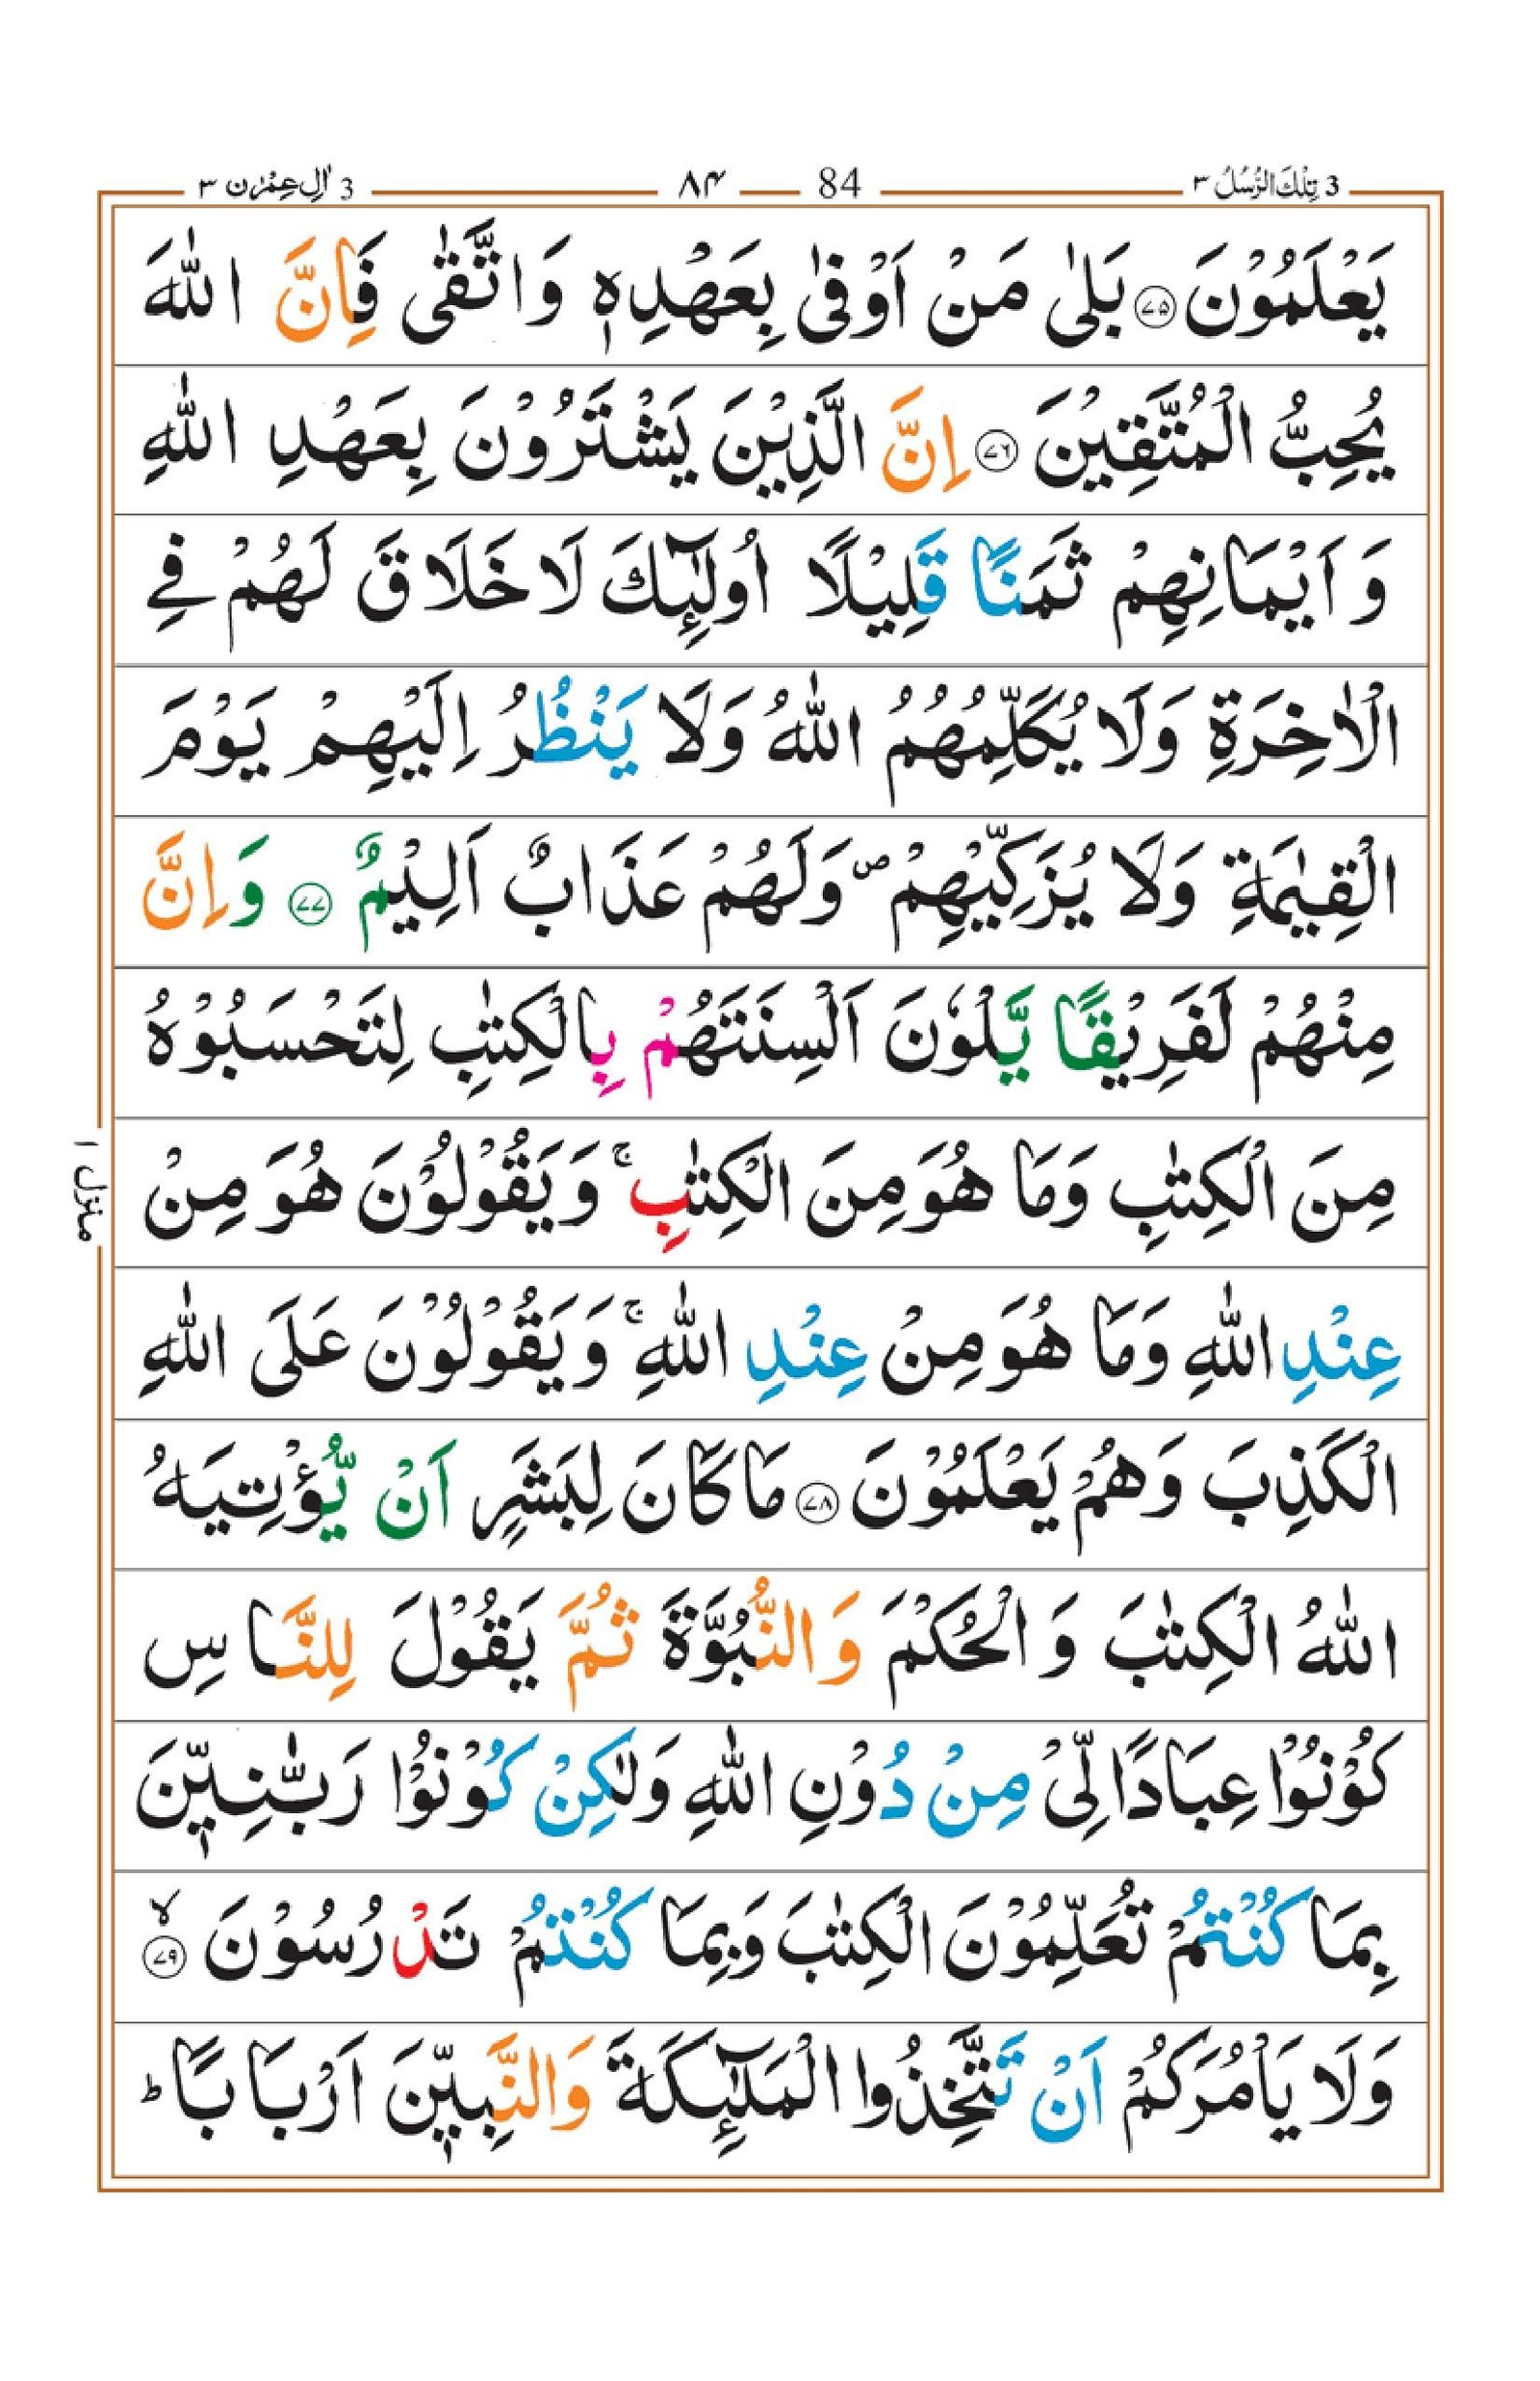 3 تِلْكَ الرُّسُلُ ٣ 84 ٨٤ 3 اٰلِ عِمْرٰن ٣
يَعْلَمُوْنَ ﴿٧٥﴾ بَلٰى مَنْ اَوْفٰى بِعَهْدِهٖ وَاتَّقٰى فَاِنَّ اللّٰهَ
يُحِبُّ الْمُتَّقِيْنَ ﴿٧٦﴾ اِنَّ الَّذِيْنَ يَشْتَرُوْنَ بِعَهْدِ اللّٰهِ
وَ اَيْمَانِهِمْ ثَمَنًا قَلِيْلًا اُولٰٓئِكَ لَا خَلَاقَ لَهُمْ فِے
الْاٰخِرَةِ وَلَا يُكَلِّمُهُمُ اللّٰهُ وَلَا يَنْظُرُ اِلَيْهِمْ يَوْمَ
الْقِيٰمَةِ وَلَا يُزَكِّيْهِمْ ۖ وَلَهُمْ عَذَابٌ اَلِيْمٌ ﴿٧٧﴾ وَاِنَّ
مِنْهُمْ لَفَرِيْقًا يَّلْوٗنَ اَلْسِنَتَهُمْ بِالْكِتٰبِ لِتَحْسَبُوْهُ
مِنَ الْكِتٰبِ وَمَا هُوَ مِنَ الْكِتٰبِ ۚ وَيَقُوْلُوْنَ هُوَ مِنْ
عِنْدِ اللّٰهِ وَمَا هُوَ مِنْ عِنْدِ اللّٰهِ ۚ وَيَقُوْلُوْنَ عَلَى اللّٰهِ
الْكَذِبَ وَهُمْ يَعْلَمُوْنَ ﴿٧٨﴾ مَا كَانَ لِبَشَرٍ اَنْ يُّؤْتِيَهُ
اللّٰهُ الْكِتٰبَ وَ الْحُكْمَ وَالنُّبُوَّةَ ثُمَّ يَقُوْلَ لِلنَّاسِ
كُوْنُوْا عِبَادًا لِّىْ مِنْ دُوْنِ اللّٰهِ وَلٰكِنْ كُوْنُوْا رَبّٰنِيّٖنَ
بِمَا كُنْتُمْ تُعَلِّمُوْنَ الْكِتٰبَ وَبِمَا كُنْتُمْ تَدْرُسُوْنَ ﴿٧٩﴾ ۙ
وَلَا يَاْمُرَكُمْ اَنْ تَتَّخِذُوا الْمَلٰٓئِكَةَ وَالنَّبِيّٖنَ اَرْبَابًا ؕ
منزل ١